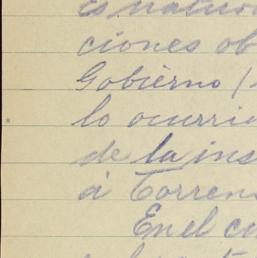 es natur
ciones ob
Gobièrno /
lo ocurri
de la ins
à Torren
En el cu